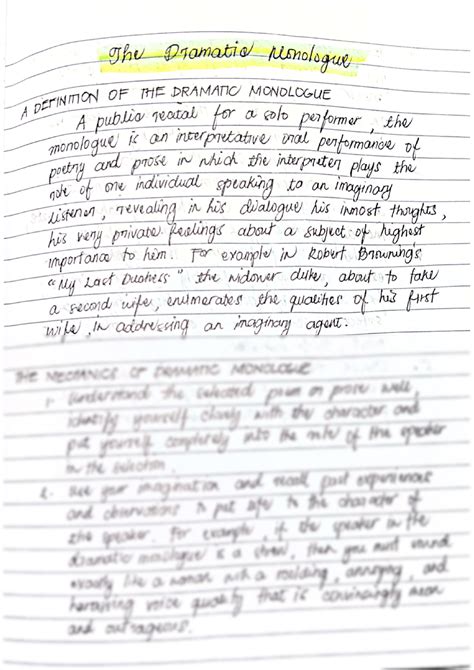 The Dramatic Monologue
A DEFINITION OF THE DRAMATIC MONOLOGUE
A public recital for a solo performer, the
monologue is an interpretative oral performance of
poetry and prose in which the interpreter plays the
role of one individual speaking to an imaginary
listener, revealing in his dialogue his inmost thoughts,
his very private feelings about a subject of highest
importance to him. For example in Robert Browning's
"My Last Duchess" the widower duke, about to take
a second wife, enumerates the qualities of his first
wife, in addressing an imaginary agent.
THE MECHANICS OF DRAMATIC MONOLOGUE
1. Understand the selected poem or prose well,
identify yourself closely with the character and
put yourself completely into the role of the speaker
in the selection.
2. Use your imagination and recall past experiences
and observations to put life to the character of
the speaker. For example, if the speaker in the
dramatic monologue is a shrew, then you must sound
exactly like a woman with a scolding, annoying, and
harassing voice quality that is convincingly mean
and outrageous.